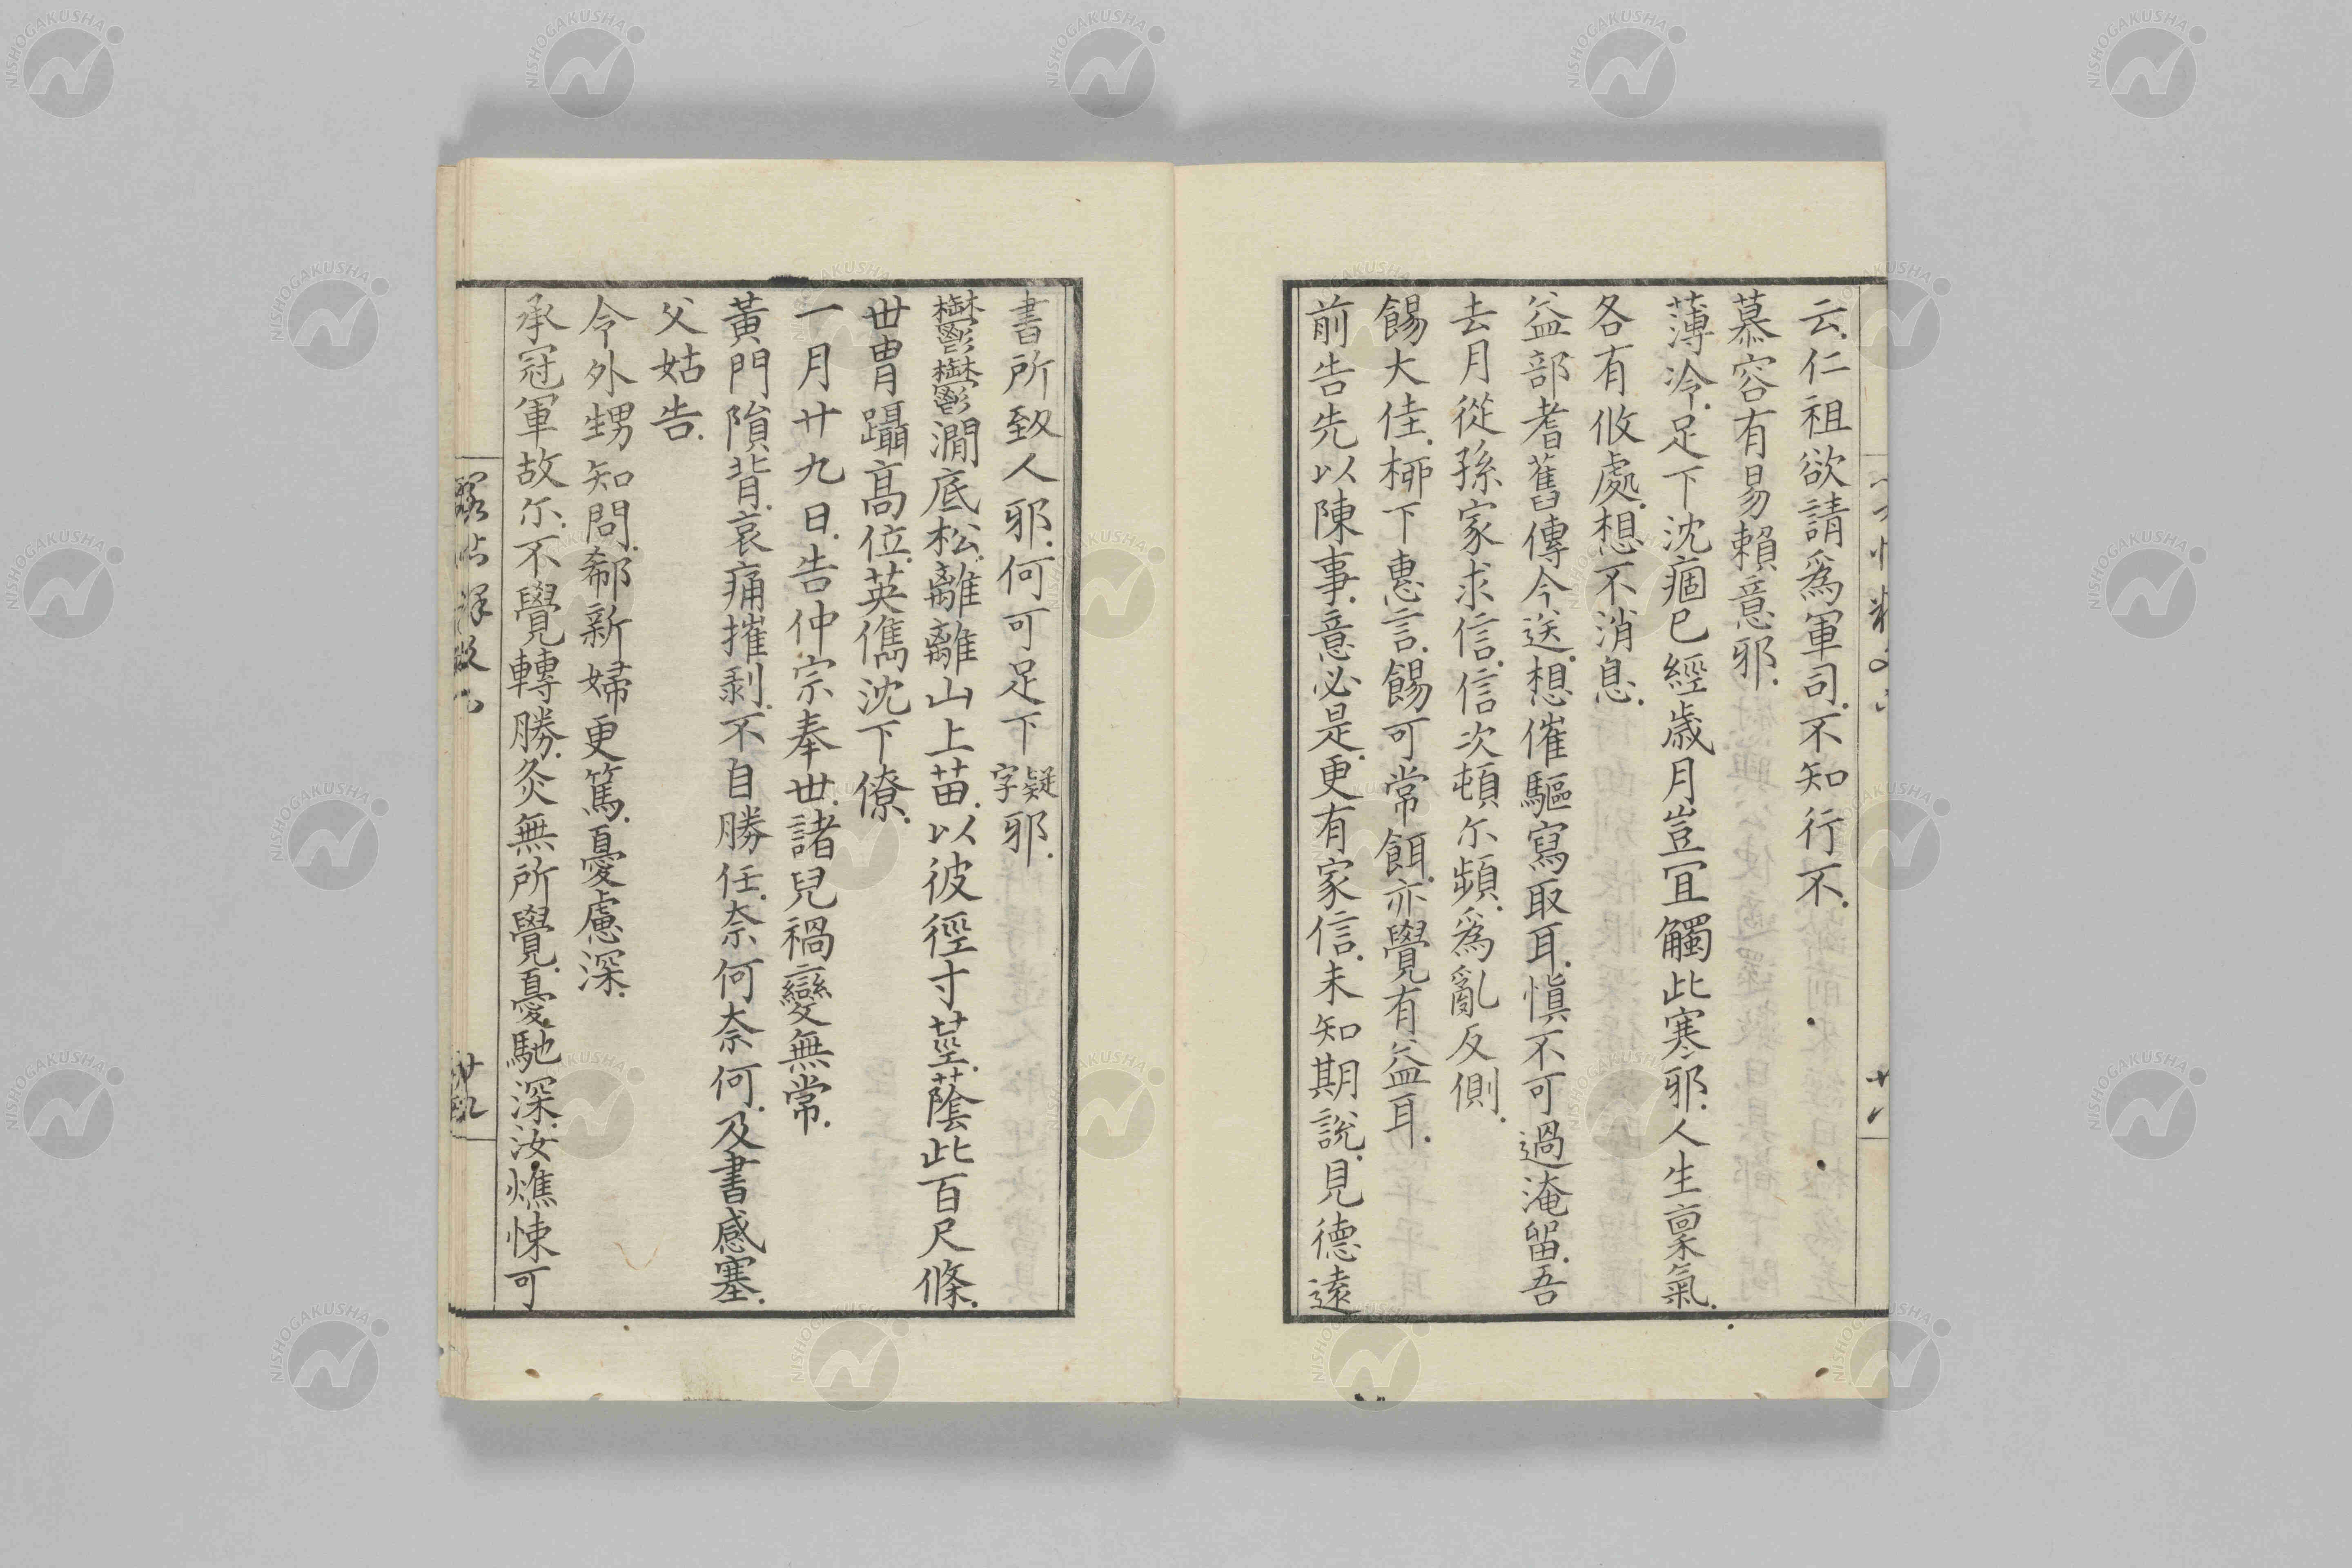 云仁祖欲請爲軍司不知行不
慕容有易賴意邪
薄冷足下沈痼已經歳月豈冝觸此寒邪人生稟氣
各有攸處想不消息
益部耆舊傳今送想催驅寫取耳愼不可過淹留吾
去月從孫家求信信次頓尓頻爲亂反側
餳大佳桺下惠言餳可常餌亦覺有益耳
前告先以陳事意必是更有家信未知期說見德遠
書所致人邪何可足下疑字邪
鬱鬱澗底松離離山上苗以彼徑寸莖蔭此百尺條
丗冑躡高位英儁沈下僚
一月廿九日告仲宗奉丗諸兒禍變無常
黃門隕背哀痛摧剥不自勝任奈何奈何及書感塞
父姑告
令外甥知問郗新婦更篤憂慮深
承冠軍故尓不覺轉勝灸無所覺憂馳深汝燋悚可
NISHOGAKUSHA